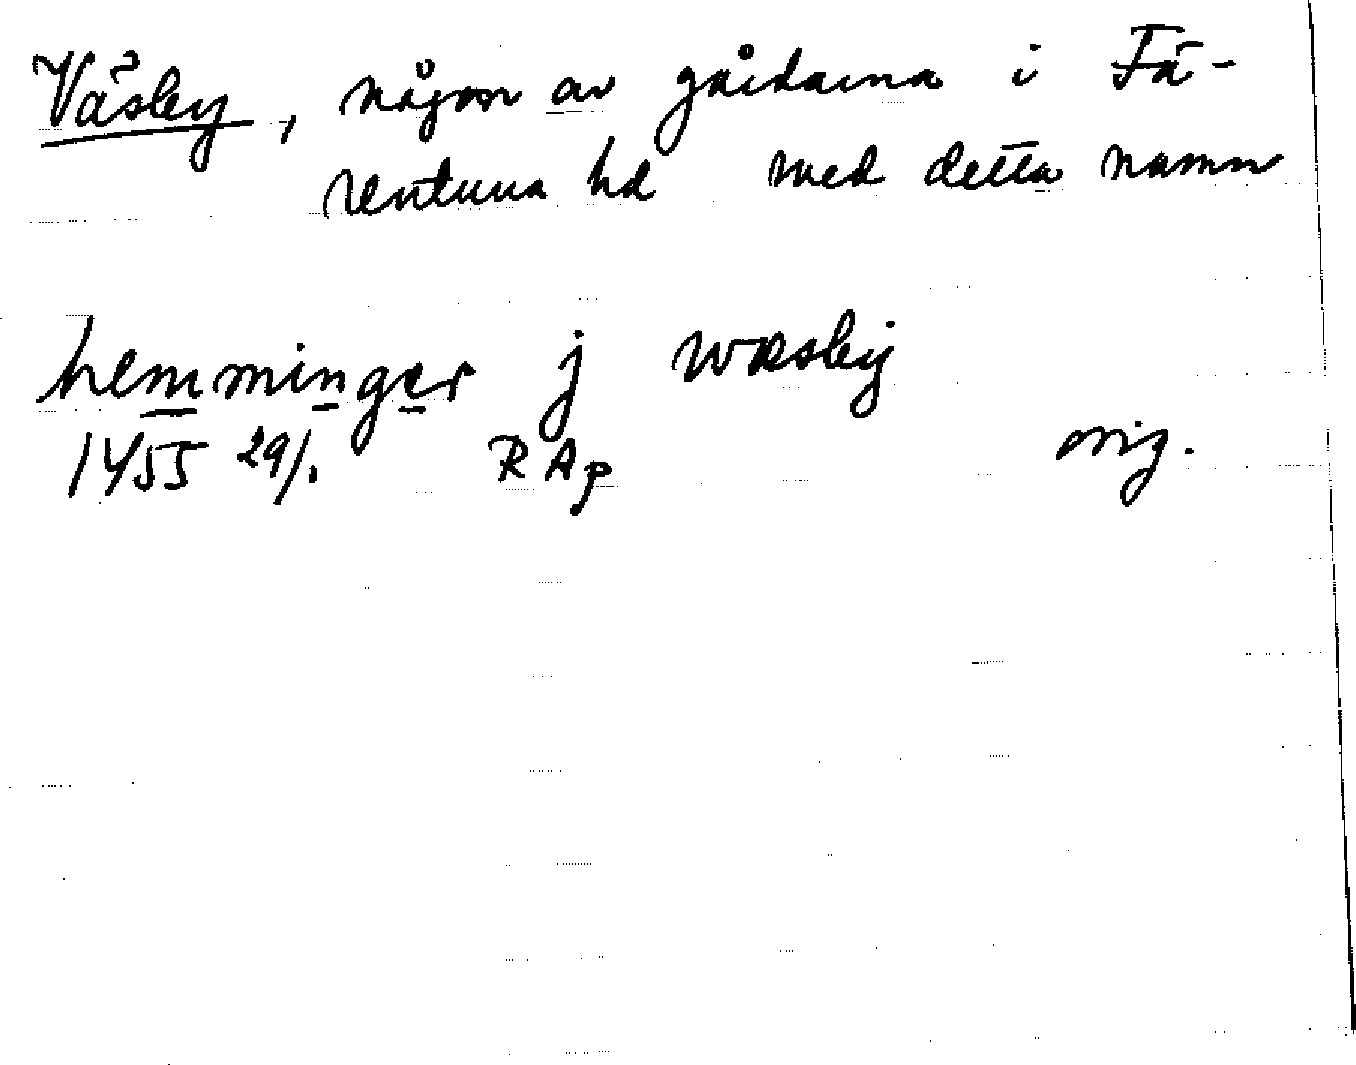 Väsby, någon av gårdarna i Fä-
rentuna hd med detta namn
hemminger j wæsby
1455 29/1 RAp orig.